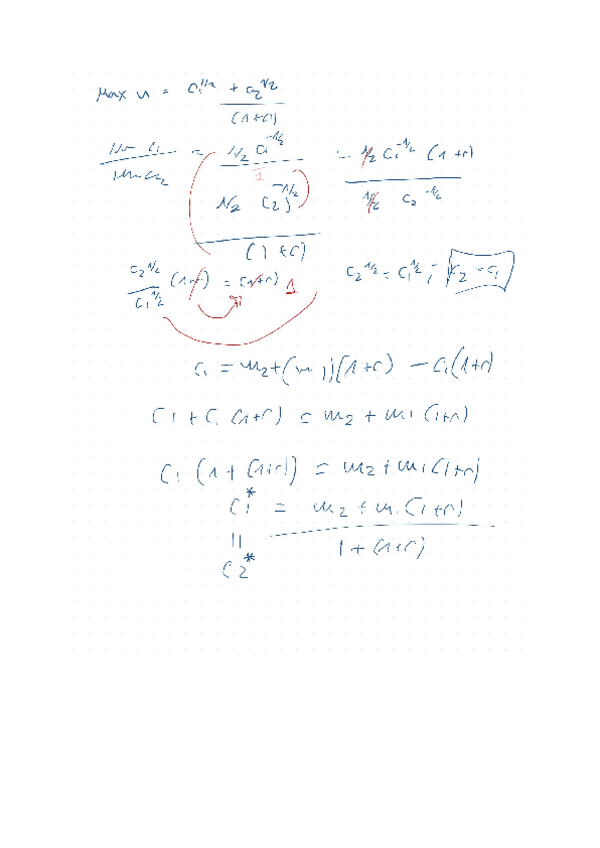 Max u = C₁^1/2 + C₂^1/2 / (1+r)
Um C₁ / Um C₂ = 1/2 C₁^-1/2 / 1 / 1/2 C₂^-1/2 / (1+r) = 1/2 C₁^-1/2 (1+r) / 1/2 C₂^-1/2
C₂^1/2 / C₁^1/2 (1+r) = (1+r) 1 C₂^1/2 = C₁^1/2 ; C₂ = C₁
C₁ = m₂ + (m1)(1+r) - C₁(1+r)
C1 + C₁ (1+r) = m₂ + m1 (1+r)
C₁ (1 + (1+r)) = m₂ + m1(1+r)
C1* = m₂ + m₁ (1+r) / 1 + (1+r)
=
C2*